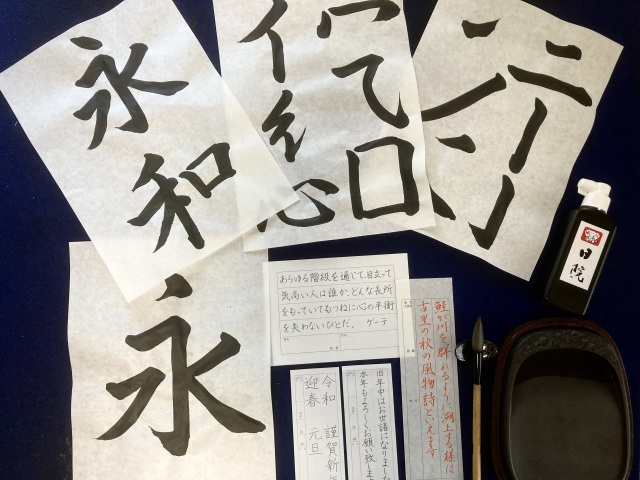 永
和
て
口
イ
心
ニ
ー
ン
永
あらゆる階級を通じて、目立って
気高い人は誰か、どんな長所
をもっていてもつねに心の平衡
を失わないひとだ。 ゲーテ
鮭が川を群れるように遡上する様は
古里の秋の風物詩といえます
旧年中はお世話になりました
本年もよろしくお願い致しま
令和 謹賀新年
迎春 元旦
日院